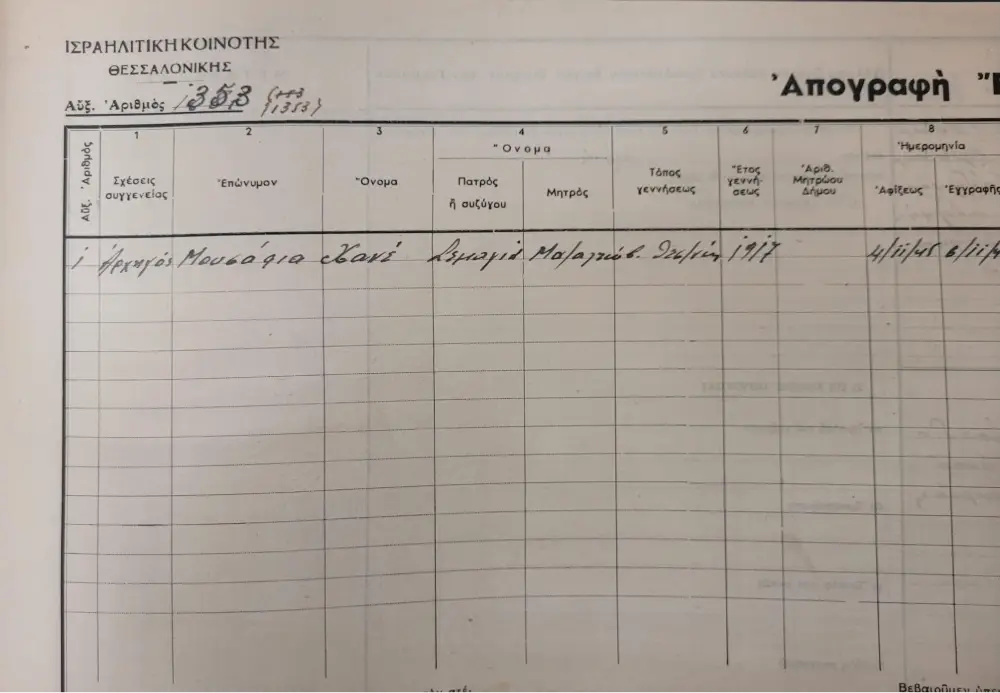 ΙΣΡΑΗΛΙΤΙΚΗ ΚΟΙΝΟΤΗΣ
ΘΕΣΣΑΛΟΝΙΚΗΣ
Αὔξ. Ἀριθμὸς 1353 (1353)
Ἀπογραφὴ
1 2 3 4 5 6 7 8
Αὔξ. Ἀριθμὸς
Σχέσεις συγγενείας
Ἐπώνυμον
Ὄνομα
Ὄνομα
Πατρός ἢ συζύγου
Μητρός
Τόπος γεννήσεως
Ἔτος γεννή-σεως
Ἀριθ. Μητρώου Δήμου
Ἡμερομηνία
Ἀφίξεως
Ἐγγραφῆς
1 Ἀρχηγός Μουσάφια 1917 4/11/45 6/11/4
Βεβαιοῦμεν